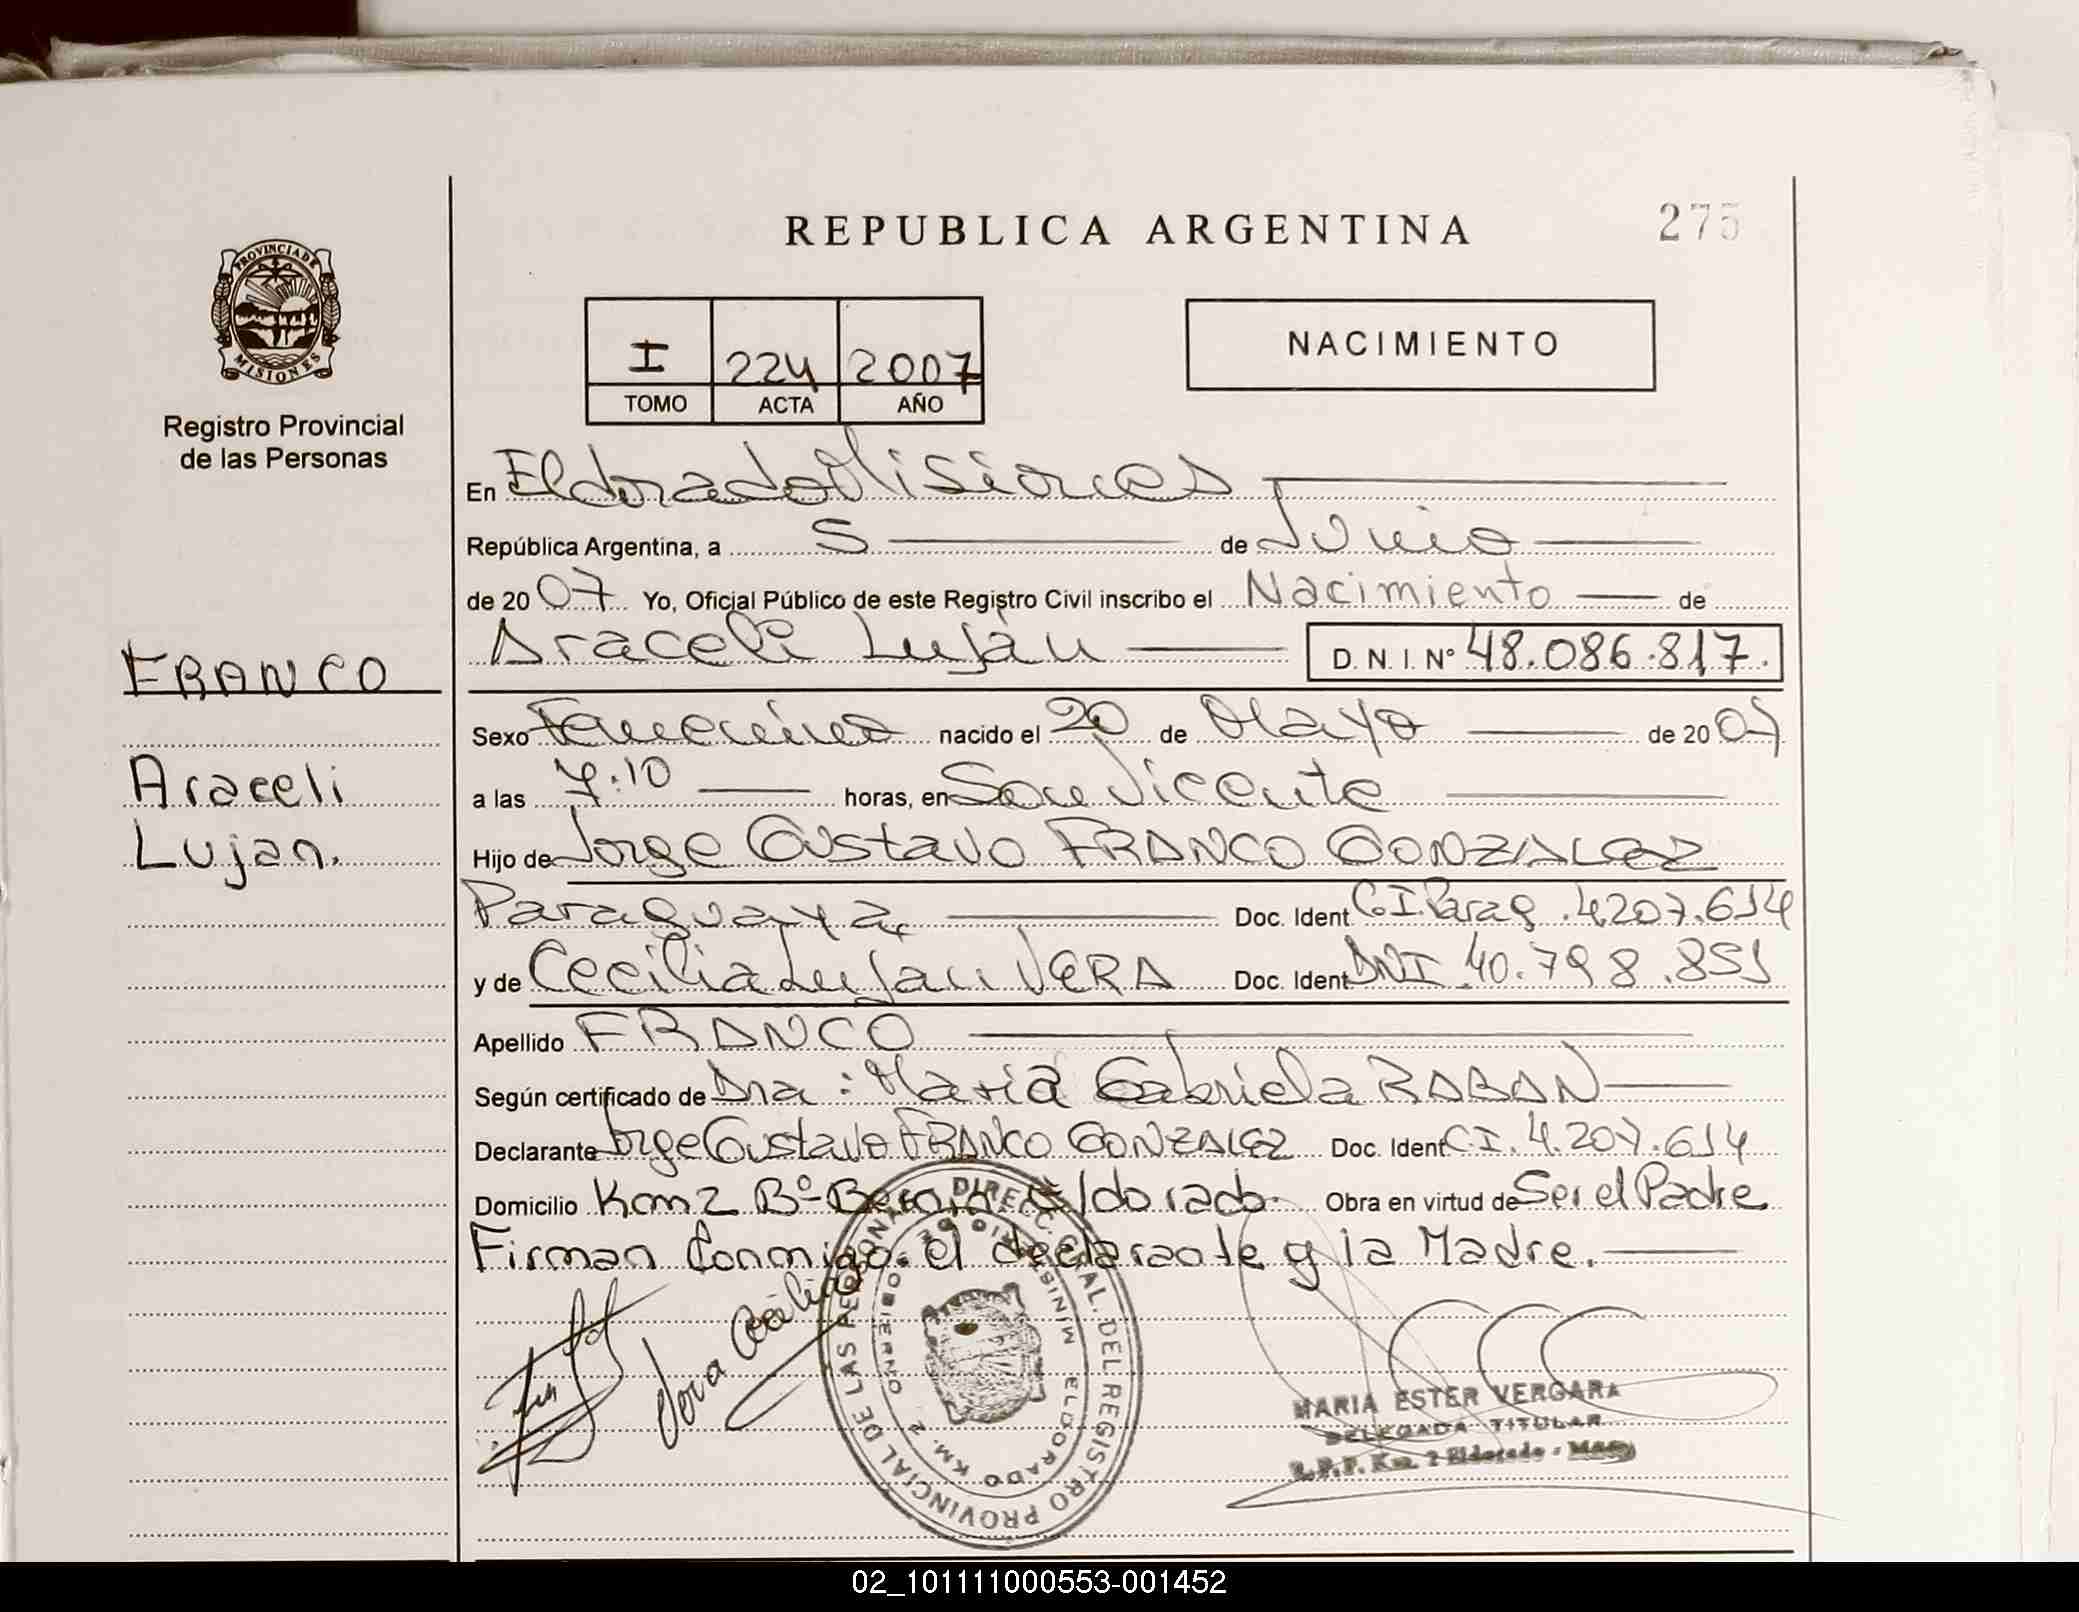 REPUBLICA ARGENTINA
275
PROVINCIA DE
MISIONES
Registro Provincial
de las Personas
I 224 2007
TOMO ACTA AÑO
NACIMIENTO
En Eldorado Misiones
República Argentina, a 5 de Junio
de 2007 Yo, Oficial Público de este Registro Civil inscribo el Nacimiento de
Araceli Luján D. N. I. N° 48.086.817.
FRANCO
Araceli
Lujan.
Sexo Femenino nacido el 20 de Mayo de 2007
a las 7:10 horas, en San Vicente
Hijo de Jorge Gustavo FRANCO GONZALEZ
Paraguaya, Doc. Ident C.I. Parag. 4207.614
y de Cecilia Luján VERA Doc. Ident DNI 40.798.851
Apellido FRANCO
Según certificado de Dra: María Gabriela RABAN
Declarante Jorge Gustavo FRANCO GONZALEZ Doc. Ident C.I. 4.207.614
Domicilio Km 2 Bº Eldorado. Obra en virtud de Ser el Padre
Firman Conmigo. el declarante y la Madre.
Vera Cecilia
DIRECC. GRAL. DEL REGISTRO PROVINCIAL DE LAS PERSONAS
MINISTERIO DE GOBIERNO
ELDORADO KM. 2
MARIA ESTER VERGARA
DELEGADA TITULAR
R.P.P. Km. 2 Eldorado - Mnes
02_101111000553-001452